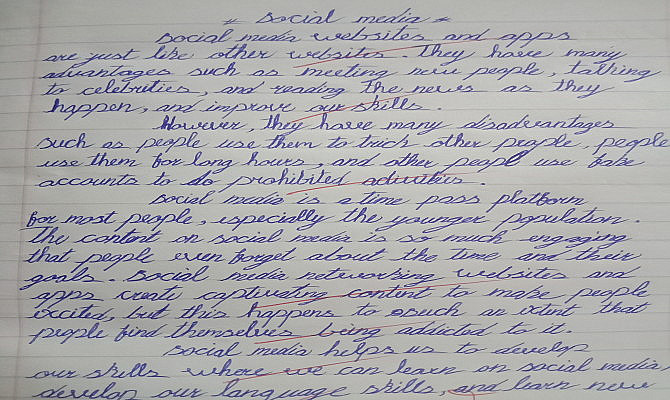 " Social media "
Social media websites and apps
are just like other websites. They have many
advantages such as meeting new people, talking
to celebrities, and reading the news as they
happen, and improve our skills.
However, they have many disadvantages
such as people use them to trick other people, people
use them for long hours, and other peopl use fake
accounts to do prohibited activities.
Social media is a time pass platform
for most people, especially the younger population.
The content on social media is so much engaging
that people even forget about the time and their
goals. Social media networking websites and
apps create captivating content to make people
excited, but this happens to such an extent that
people find themselves being addicted to it.
Social media helps us to develop
our skills where we can learn on social media,
develop our language skills, and learn new